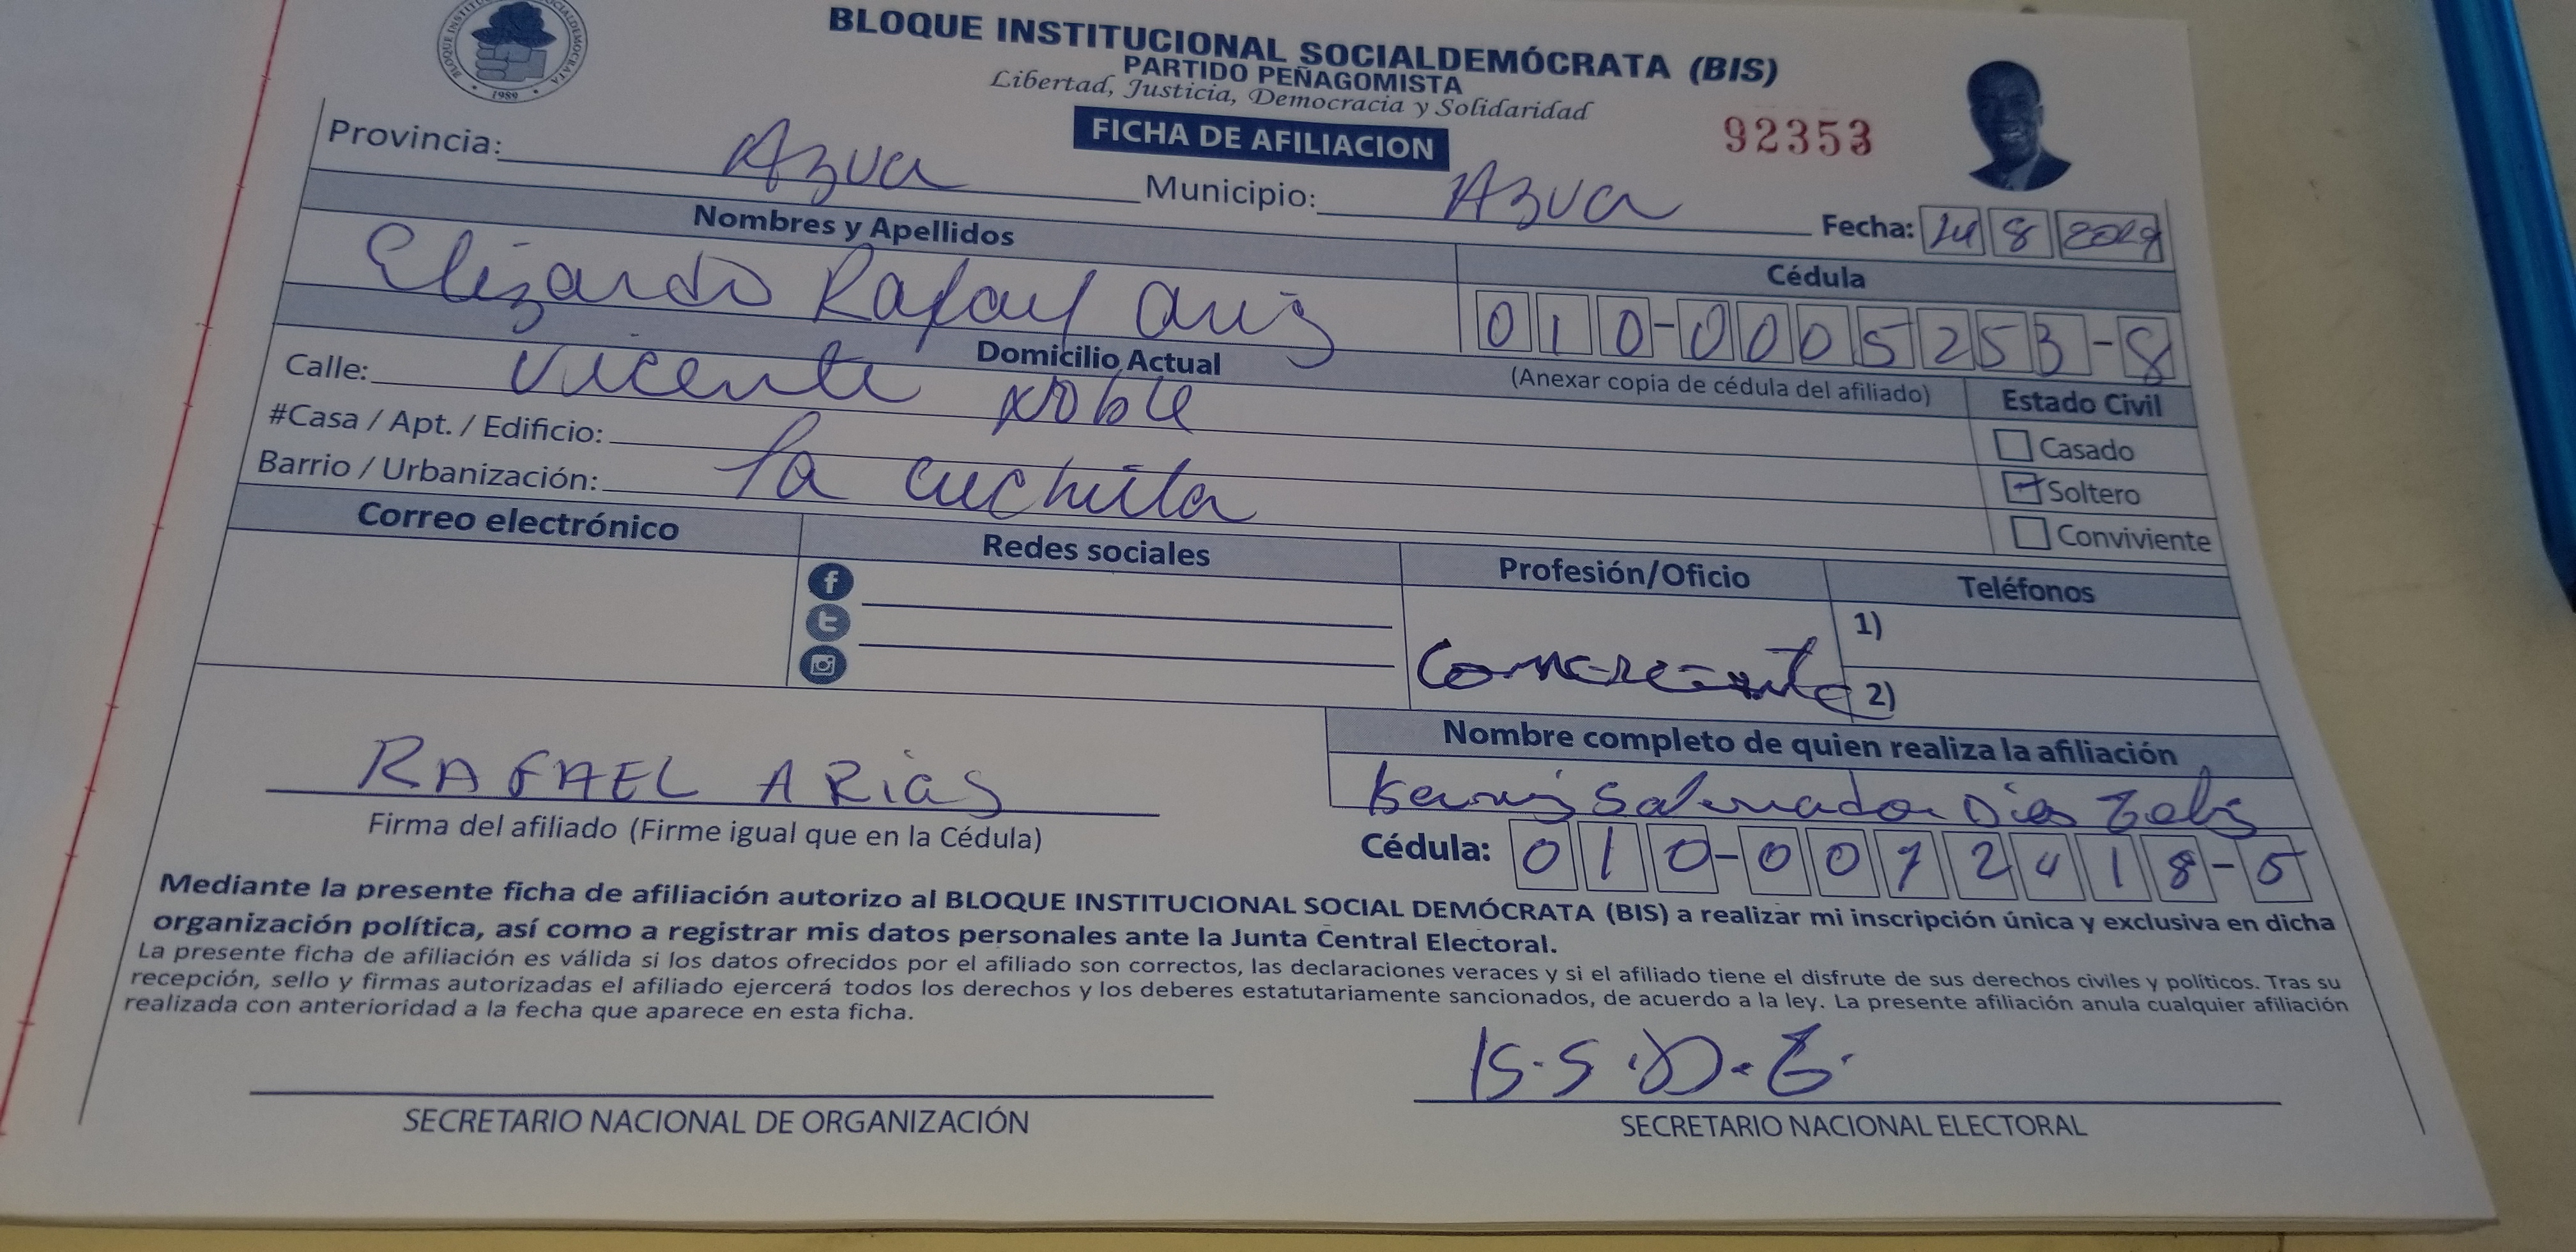 BLOQUE INSTITUCIONAL SOCIALDEMÓCRATA (BIS)
PARTIDO PEÑAGOMISTA
Libertad, Justicia, Democracia y Solidaridad
FICHA DE AFILIACION
92353
1989
Provincia: Azua Municipio: Azua Fecha: 24 8 2019
Nombres y Apellidos
Elizardo Rafael
Cédula
010-0005253-8
(Anexar copia de cédula del afiliado)
Domicilio Actual
Calle: Vicente Noble
#Casa / Apt. / Edificio:
Barrio / Urbanización: la cuchilla
Estado Civil
Casado
Soltero
Conviviente
Correo electrónico
Redes sociales
Profesión/Oficio
Comerciante
Teléfonos
1)
2)
RAFAEL ARiaS
Firma del afiliado (Firme igual que en la Cédula)
Nombre completo de quien realiza la afiliación
Salvador
Cédula: 010-0072418-5
Mediante la presente ficha de afiliación autorizo al BLOQUE INSTITUCIONAL SOCIAL DEMÓCRATA (BIS) a realizar mi inscripción única y exclusiva en dicha
organización política, así como a registrar mis datos personales ante la Junta Central Electoral.
La presente ficha de afiliación es válida si los datos ofrecidos por el afiliado son correctos, las declaraciones veraces y si el afiliado tiene el disfrute de sus derechos civiles y políticos. Tras su
recepción, sello y firmas autorizadas el afiliado ejercerá todos los derechos y los deberes estatutariamente sancionados, de acuerdo a la ley. La presente afiliación anula cualquier afiliación
realizada con anterioridad a la fecha que aparece en esta ficha.
SECRETARIO NACIONAL DE ORGANIZACIÓN
SECRETARIO NACIONAL ELECTORAL